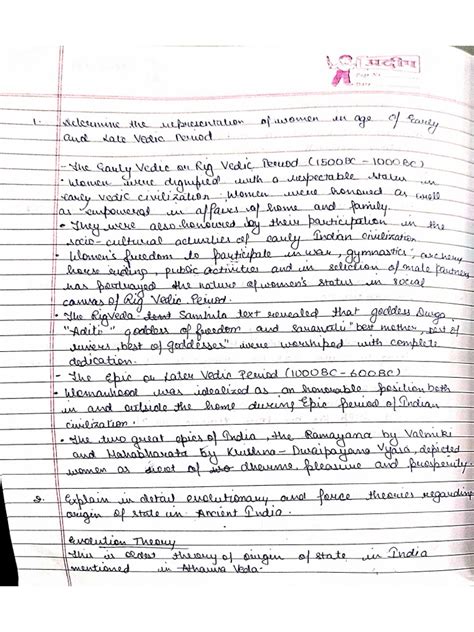 प्रदीप
Page No.
Date
1. Determine the representation of women in age of Early
and Late Vedic Period.
- The Early Vedic or Rig Vedic Period (1500BC - 1000BC)
• Women were dignified with a respectable status in
early vedic civilization. Women were honoured as well
as empowered in affairs of home and family.
• They were also honoured by their participation in the
socio-cultural activities of early Indian civilization
• Women's freedom to participate in war, gymnastics, archery
horse riding, public activities and in selection of male partners
has portrayed the nature of women's status in social
canvas of Rig Vedic Period.
• The Rigveda text Samhita text revealed that goddess Durga
"Aditi" goddess of freedom and Saraswati "best mother, best of
rivers, best of goddesses" were worshiped with complete
dedication.
- The Epic or Later Vedic Period (1000BC - 600BC)
• Womanhood was idealized as an honorable position both
in and outside the home during Epic period of Indian
civilization.
• The two great epics of India, the Ramayana by Valmiki
and Mahabharata by Krishna-Dwaipayana Vyasa, depicted
women as root of dharma, pleasure and prosperity.
2. Explain in detail evolutionary and force theories regarding
origin of state in Ancient India.
Evolution Theory
This is oldest theory of origin of state in India
mentioned in Atharva Veda.